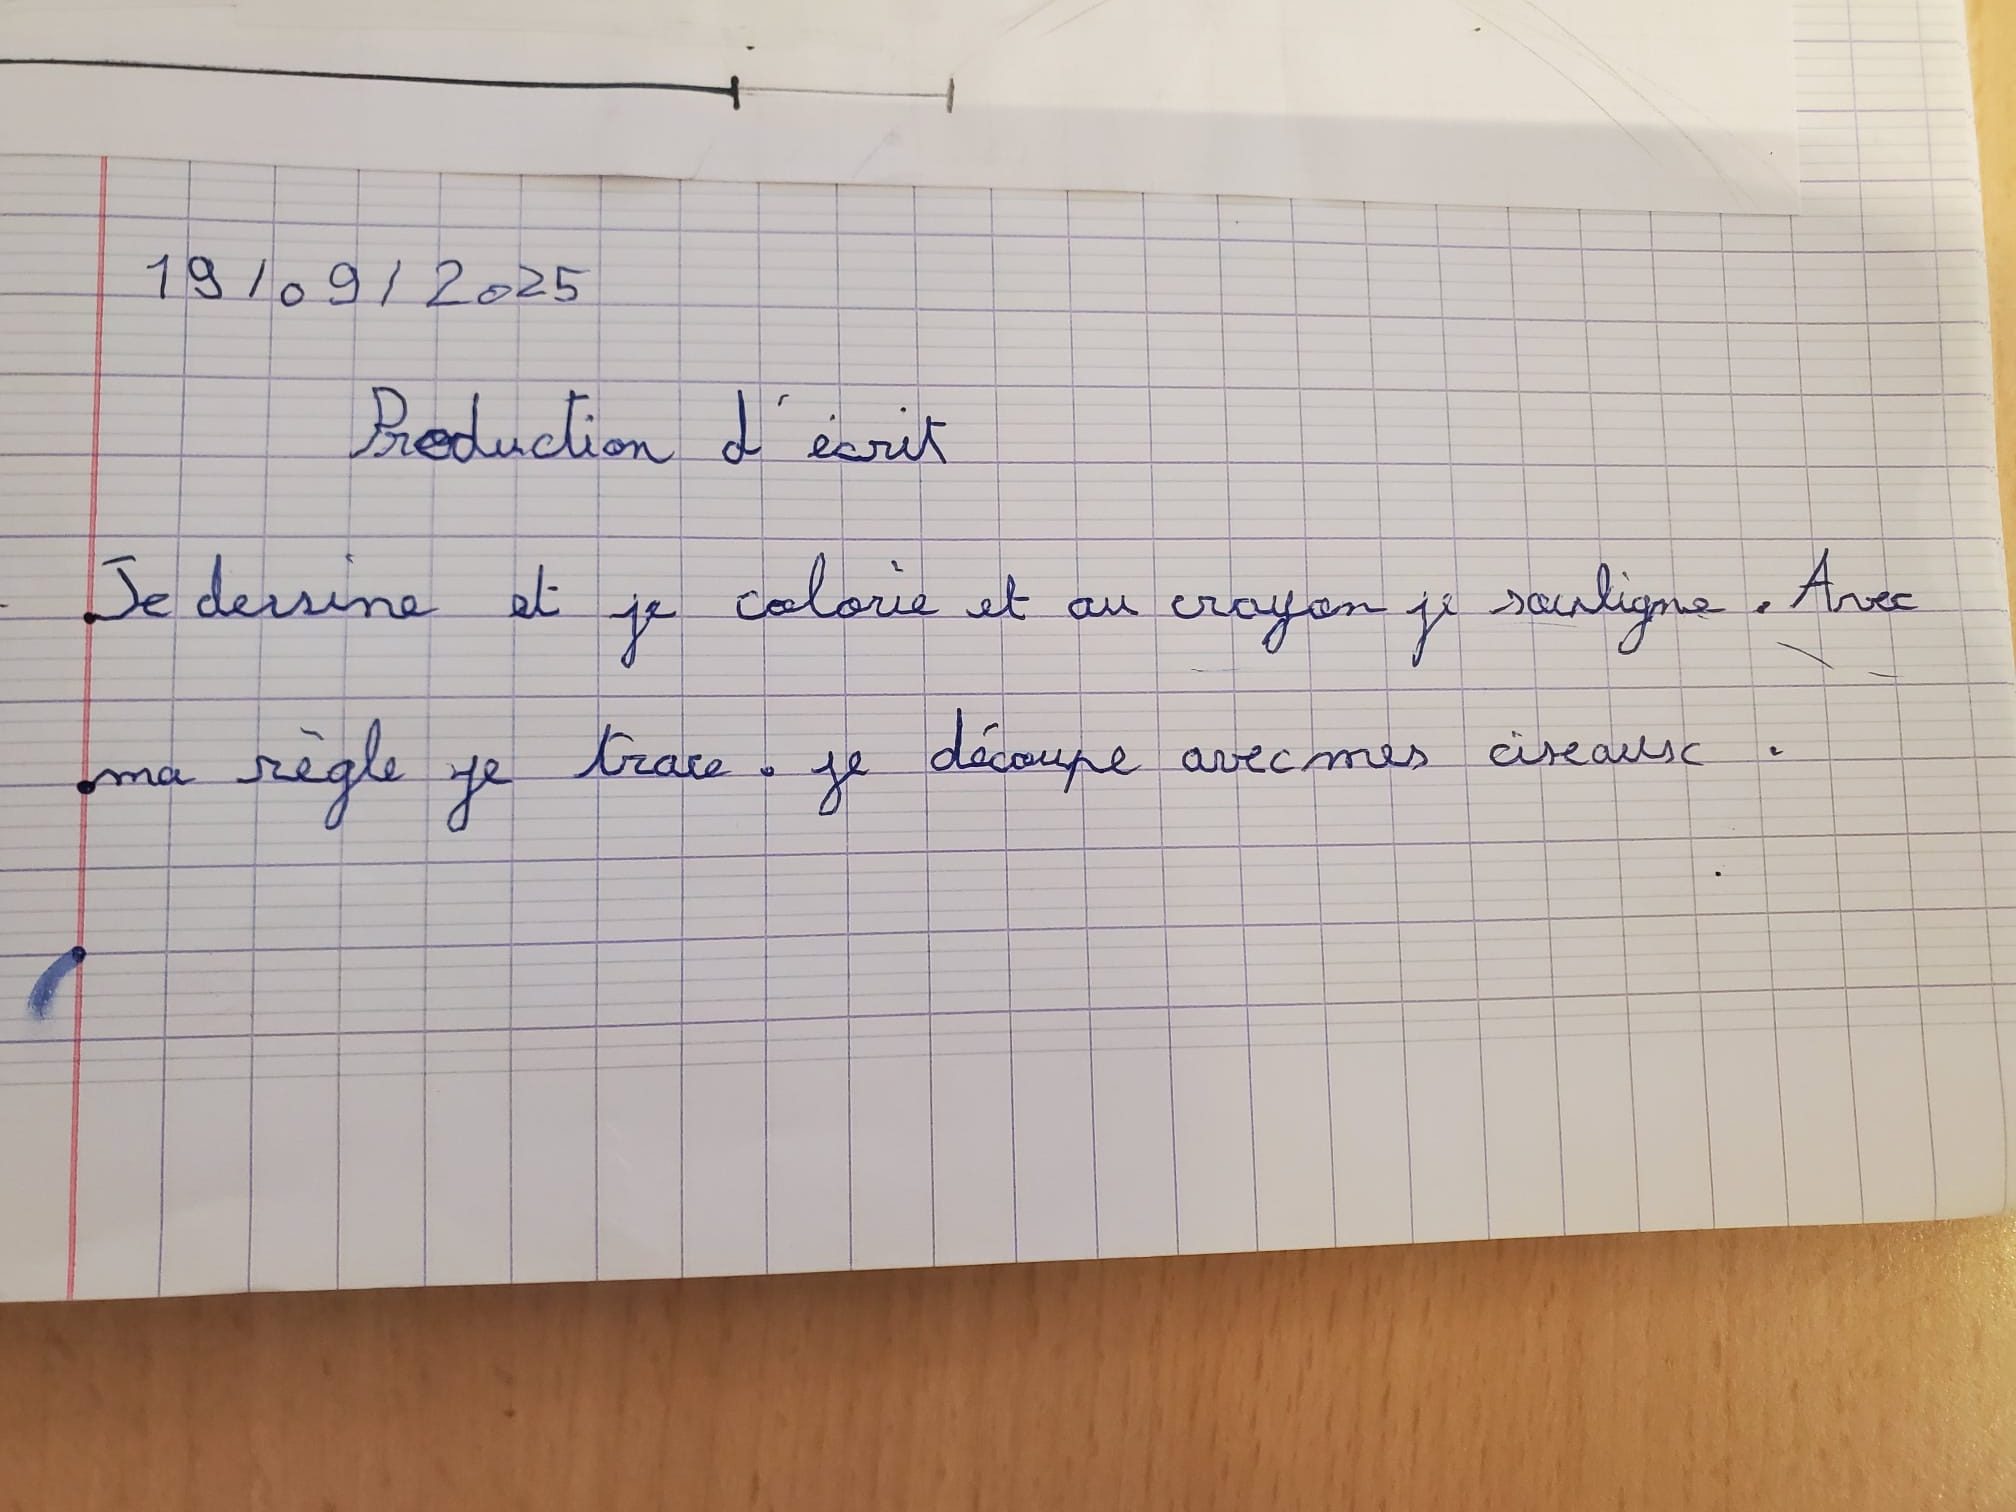 19/09/2025
Production d'écrit
Je dessine et je colorie et au crayon je souligne. Avec
ma règle je trace. je découpe avec mes ciseaux.